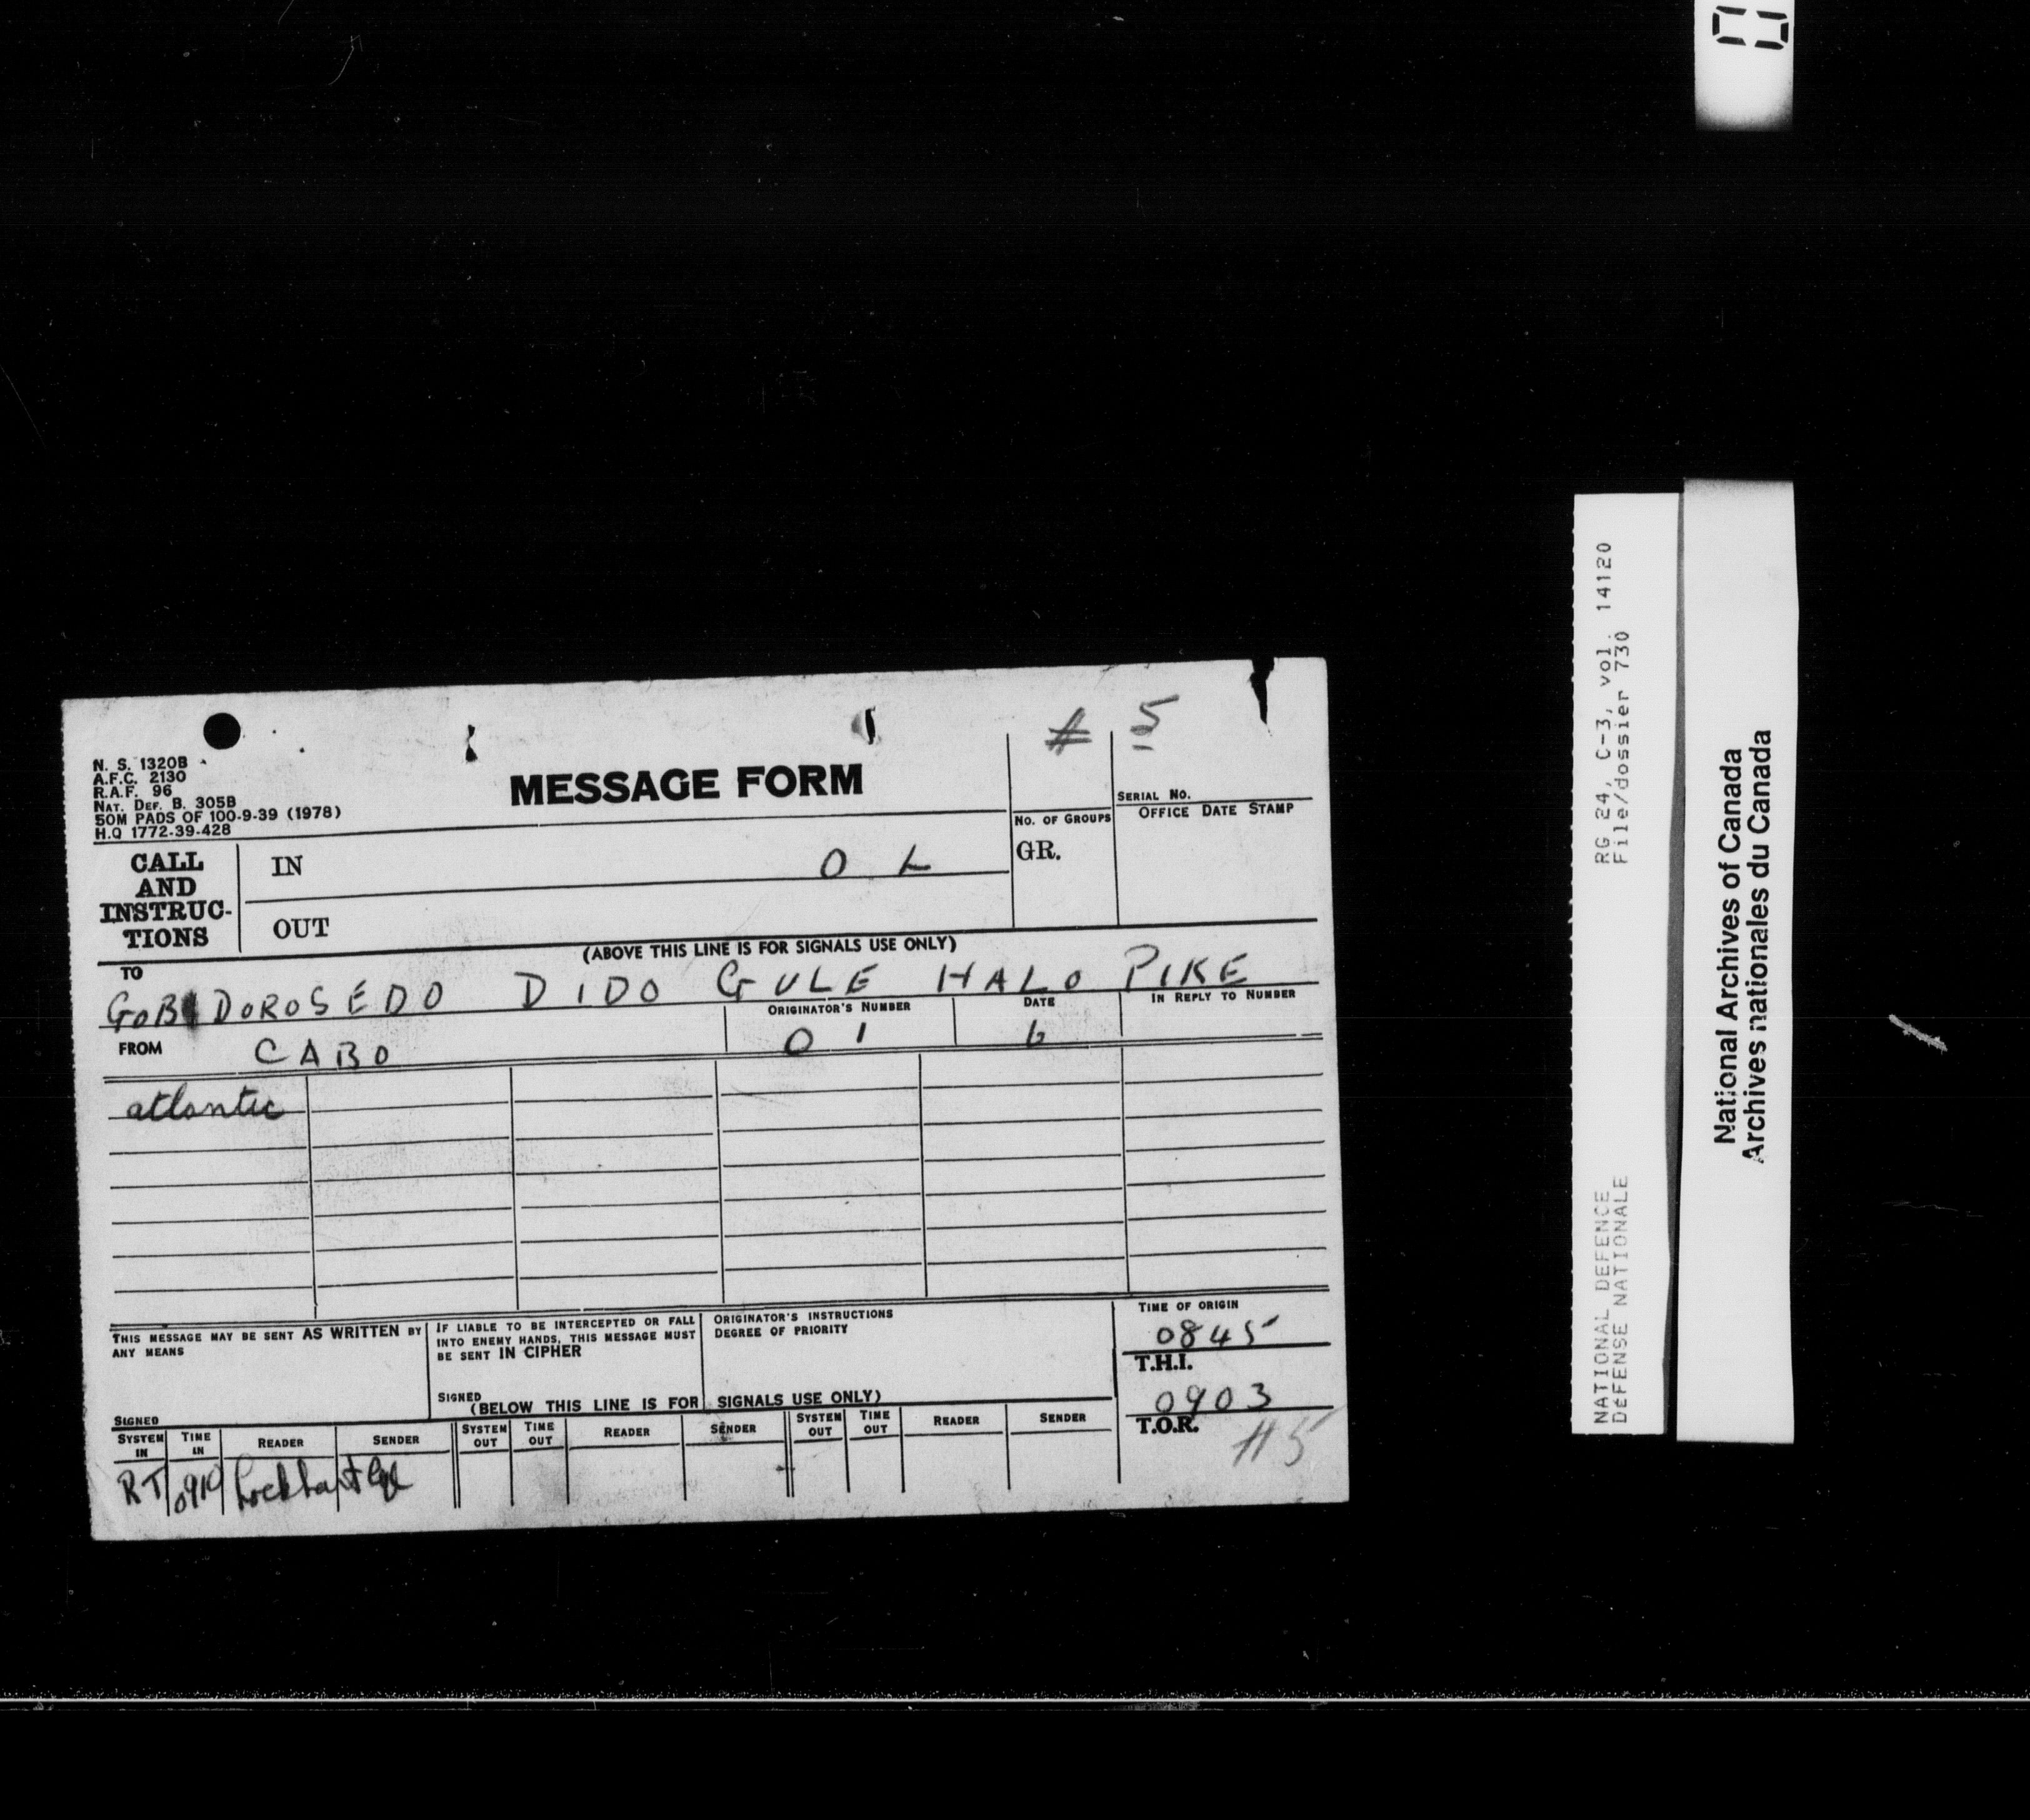 # 5
N. S. 1320B
A.F.C. 2130
R.A.F. 96
NAT. DEF. B. 305B
50M PADS OF 100-9-39 (1978)
H.Q 1772-39-428
MESSAGE FORM
SERIAL NO.
NO. OF GROUPS
OFFICE DATE STAMP
CALL AND INSTRUC-TIONS
IN O L
GR.
OUT
(ABOVE THIS LINE IS FOR SIGNALS USE ONLY)
TO
DOROSEDO DIDO GULE HALO PIKE
ORIGINATOR'S NUMBER
DATE
IN REPLY TO NUMBER
FROM CABO
01
6
atlantic
THIS MESSAGE MAY BE SENT AS WRITTEN BY
ANY MEANS
SIGNED
IF LIABLE TO BE INTERCEPTED OR FALL
INTO ENEMY HANDS, THIS MESSAGE MUST
BE SENT IN CIPHER
SIGNED
ORIGINATOR'S INSTRUCTIONS
DEGREE OF PRIORITY
TIME OF ORIGIN
0845
T.H.I.
0903
T.O.R.
#5
(BELOW THIS LINE IS FOR SIGNALS USE ONLY)
SYSTEM IN
TIME IN
READER
SENDER
SYSTEM OUT
TIME OUT
READER
SENDER
SYSTEM OUT
TIME OUT
READER
SENDER
RT 0910 Lockhart
RG 24, C-3, vol. 14120
File/dossier 730
NATIONAL DEFENCE
DÉFENSE NATIONALE
National Archives of Canada
Archives nationales du Canada